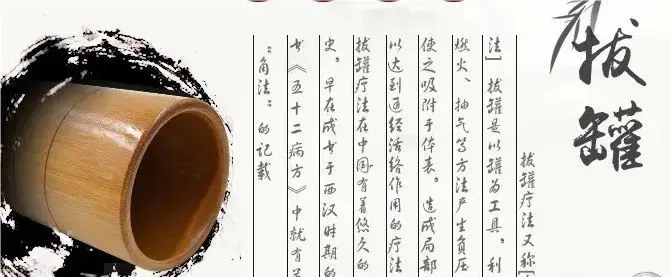 拔罐
拔罐疗法又称
法】拔罐是以罐为工具,利
燃火、抽气等方法产生负压
使之吸附于体表。造成局部
以达到通经活络作用的疗法
拔罐疗法在中国有着悠久的
史,早在成书于西汉时期的
书《五十二病方》中就有
“角法”的记载